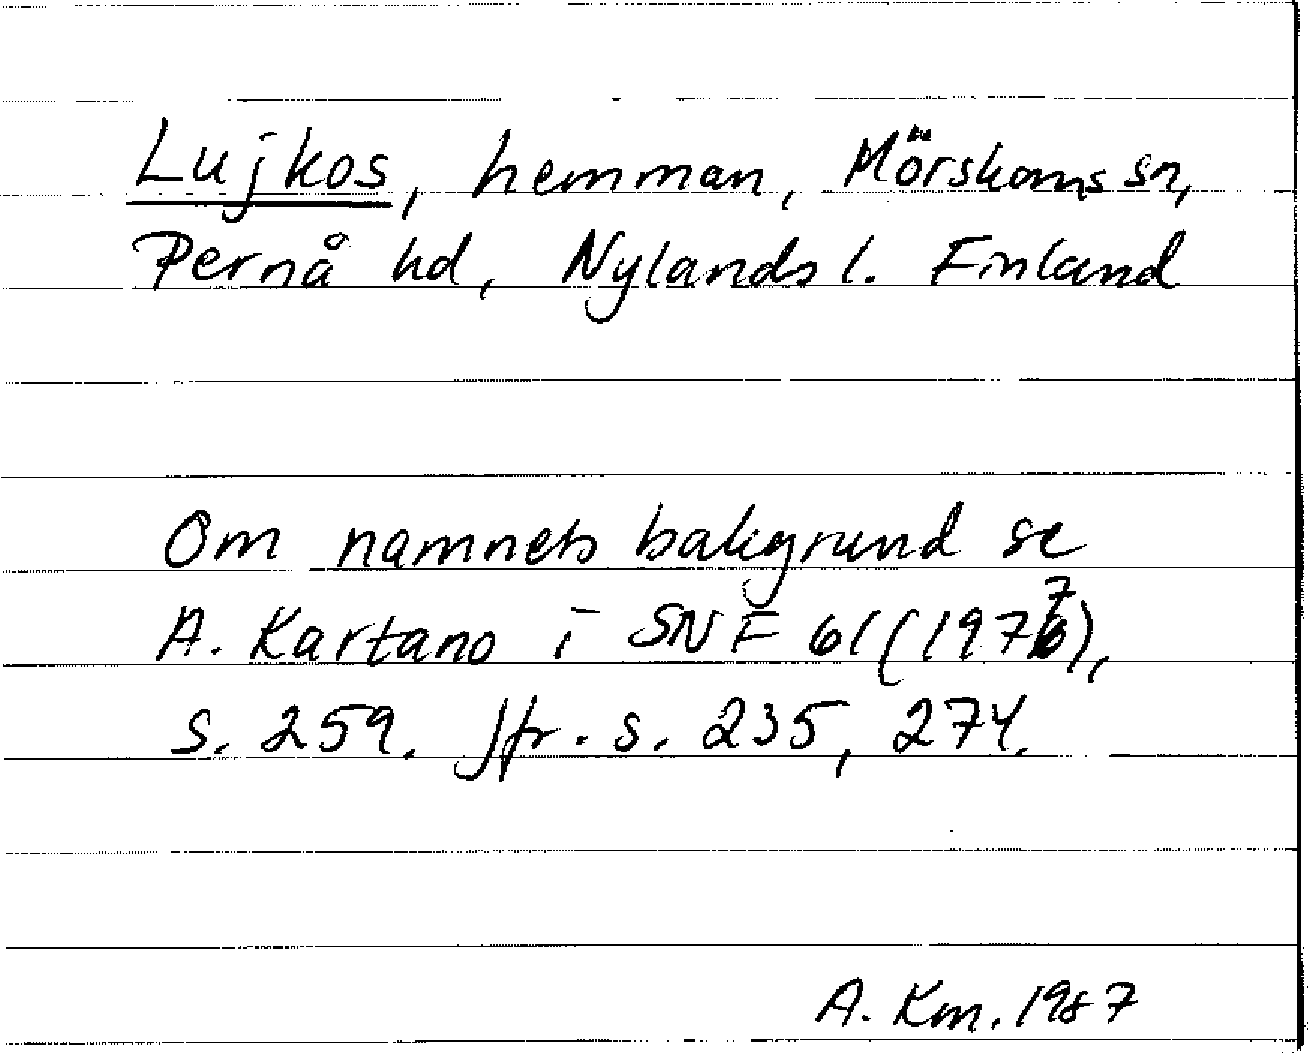 Lujkos, hemman, Mörskoms sn,
Pernå hd, Nylands l. Finland
Om namnets bakgrund se
A. Kartano i SNF 61 (1977),
s. 259. Jfr. s. 235, 274.
A. Km. 1987